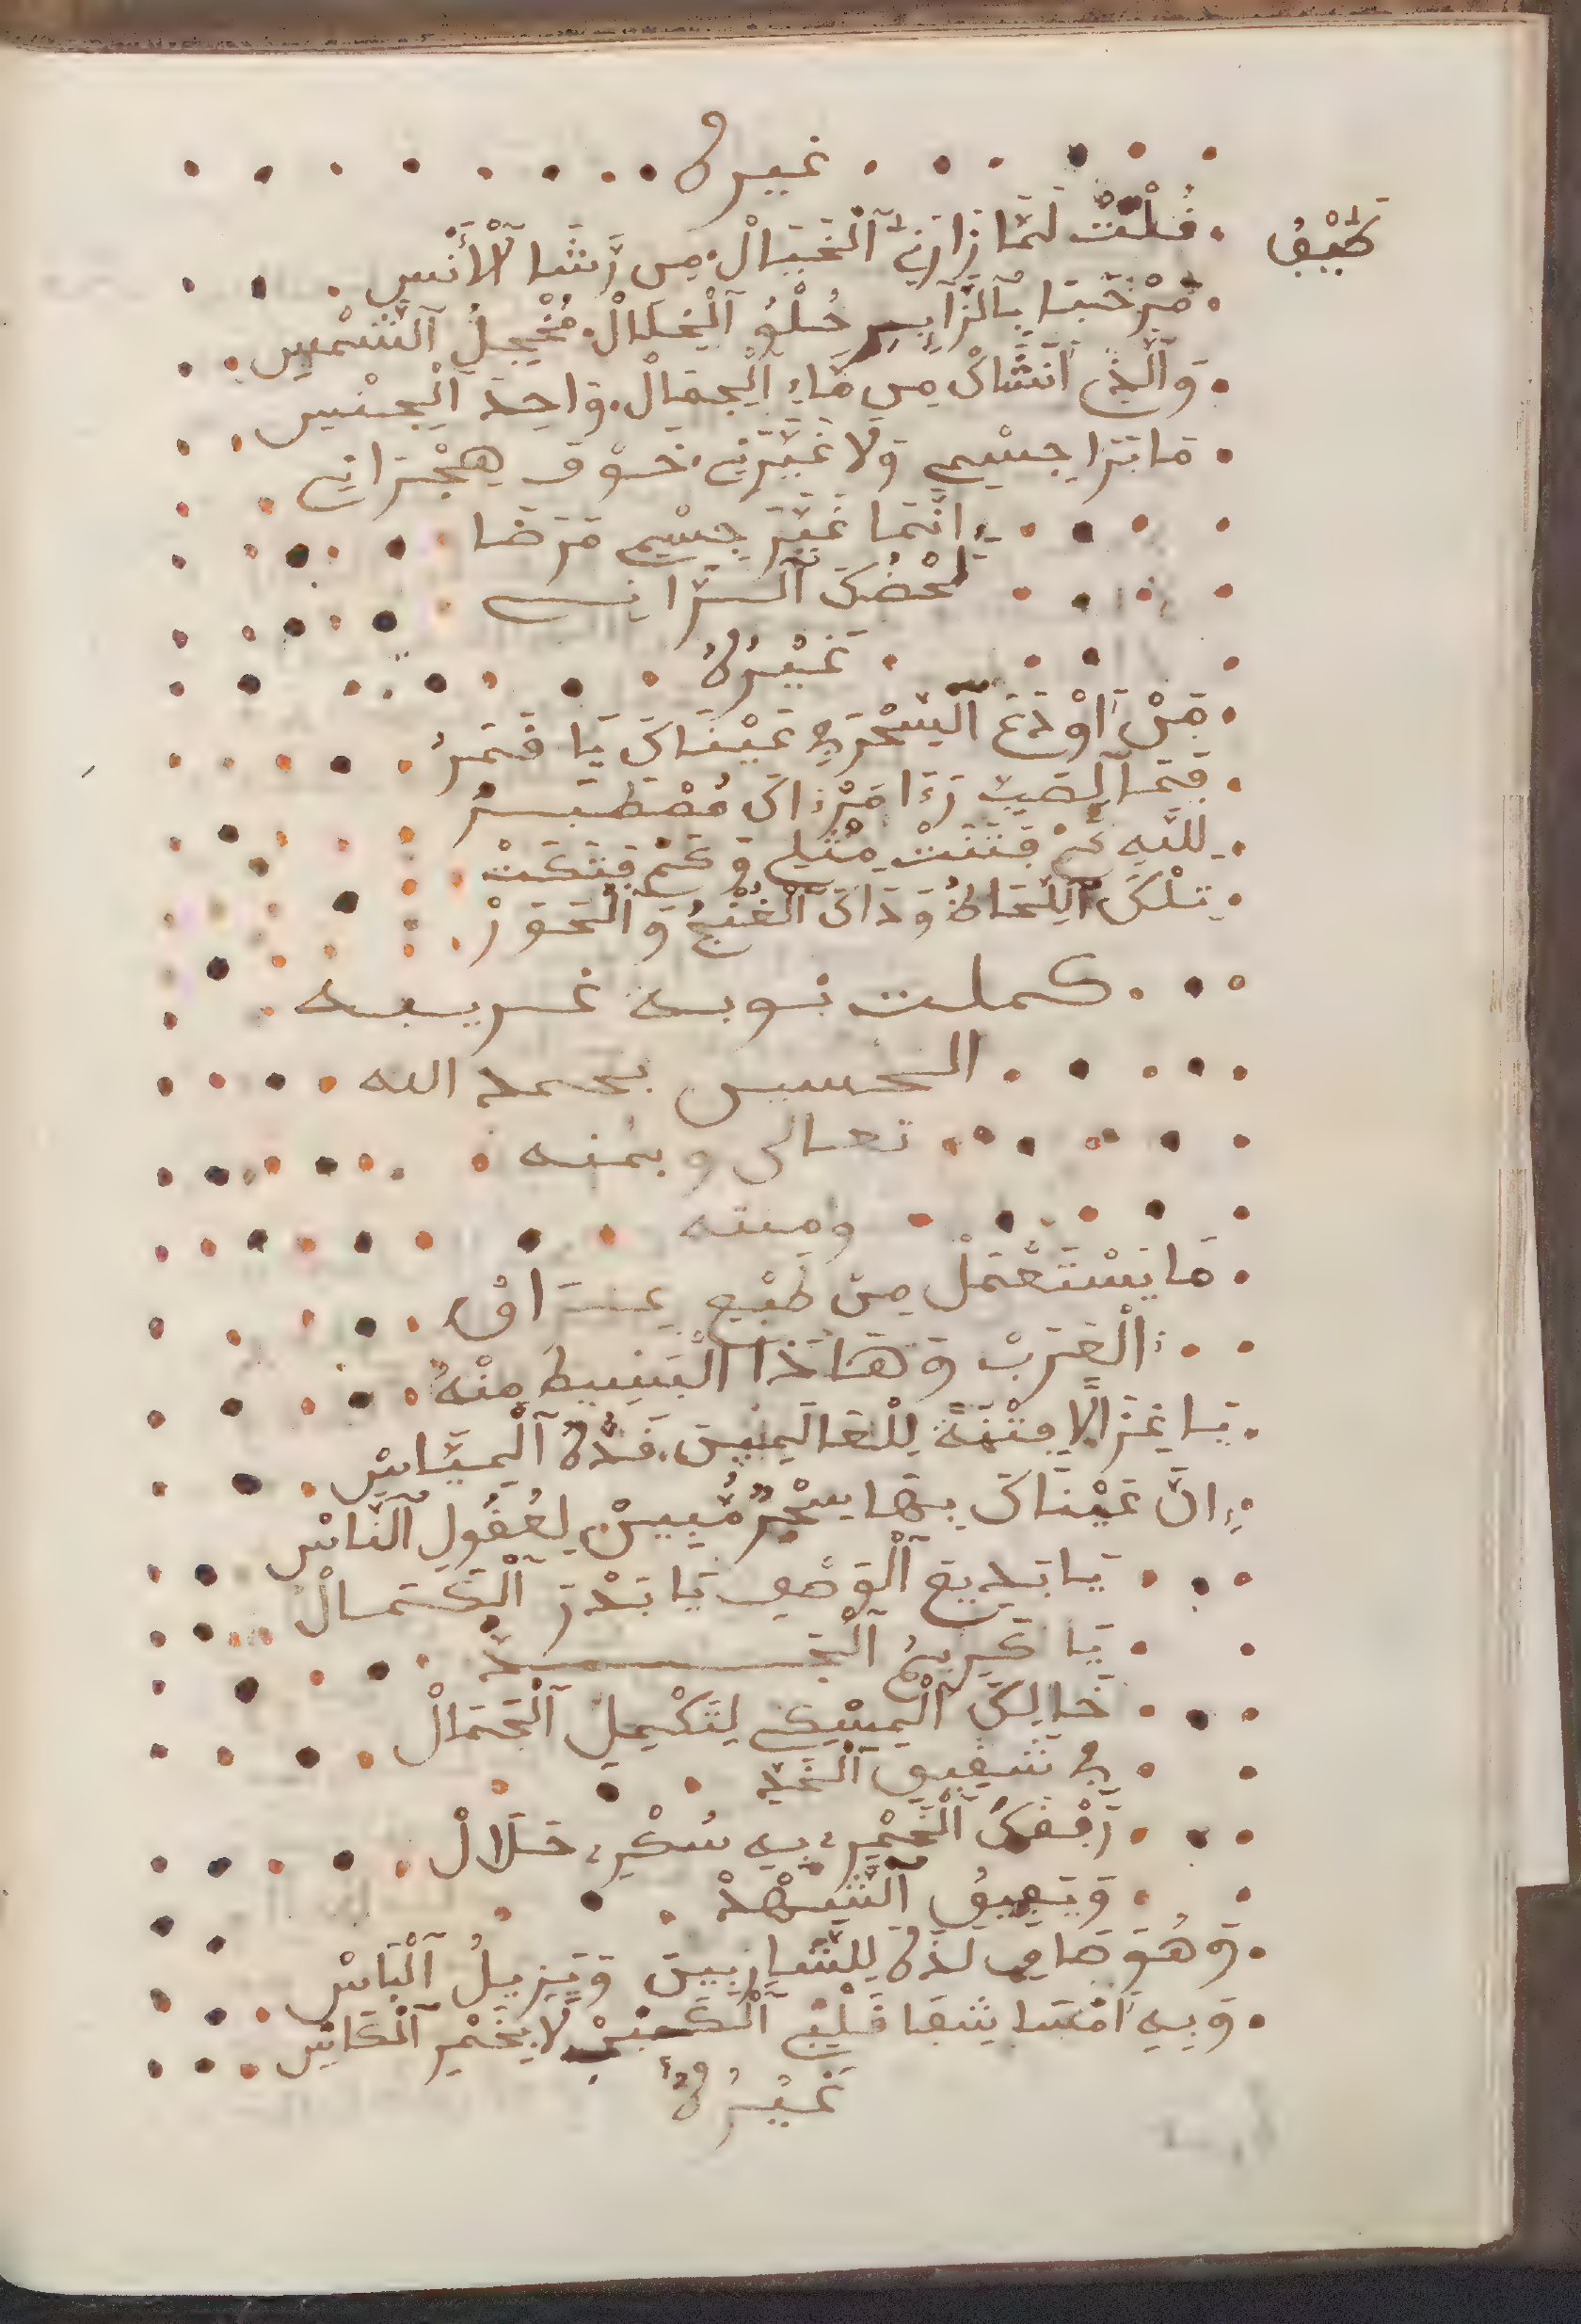 غيره
قُلْتْ لَمَّا زَارَنِي اَلْخَيَالْ مِن رَّشَا اَلْأَنْسِ
طَيْفُ
مَرْحَبَا بِالزَّايِرِ حُلْوُ اَلْخِلَالْ مُخْجِلُ اَلشَّمْسِ
وَالَّذِي اَنْشَاكَ مِن مَّاءِ اَلْجَمَالْ وَاحِدَ اَلْجِنْسِ
مَا بَرَا جِسْمِي وَلَا غَيَّرَنِي خَوْفَ هِجْرَانِي
إِنَّمَا غَيَّرَ جِسْمِي مَرَضَا
لَحْضُكَ اَلرَّانِي
غَيْرُهُ
مَنْ اَوْدَعَ اَلسِّحْرَ فِي عَيْنَاكَ يَا قَمَرُ
فَمَا لِصَبٍّ رَءَا مَرْءَاكَ مُصْطَبَرُ
لِلَّهِ كَمْ فَتَنَتْ مِثْلِي وَكَمْ فَتَكَتْ
تِلْكَ اَللِّحَاظُ وَذَاكَ اَلْغُنْجُ وَالْحَوَرْ
كملت نوبه غريبه
الحسين بحمد الله
تعالى وبمنه
ومنته
مَا يَسْتَعْمَلْ مِنْ طَبْعِ عِرَاقْ
اَلْعَرَبْ وَهَاذَا اَلْبَسِيطْ مِنْهُ
يَا غَزَالًا فِتْنَةً لِلْعَالَمِينَ قَدُّهُ اَلْمَيَّاسْ
إِنَّ عَيْنَاكَ بِهَا سِحْرٌ مُّبِينْ لِعُقُولِ اَلنَّاسْ
يَا بَدِيعَ اَلْوَصْفِ يَا بَدْرَ اَلْكَمَالْ
يَا كَرِيمُ اَلْجَدّ
خَالِكَ اَلْمِسْكِي لِتَكْمِيلِ اَلْجَمَالْ
فِي شَقِيقِ اَلْخَدِّ
رِفْفُكَ اَلْخَمْرِي بِهِ سُكْرِي حَلَالْ
وَيَفِيقُ اَلشَّهْدْ
وَهُوَ صَافِي لَذَّهْ لِلشَّارِبِينَ وَيَزِيلُ اَلْبَاسْ
وَبِهِ اَمْسَا شِفَا قَلْبِي اَلْحَزِينْ لَا بِخَمْرِ اَلْكَاسْ
غَيْرُهُ